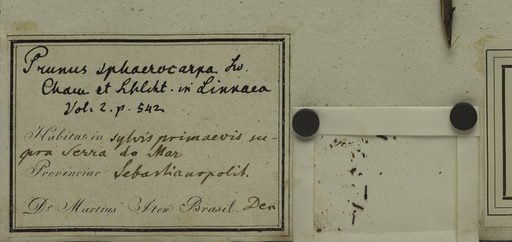 Prunus sphaerocarpa Sw.
Cham et Schlcht. in Linnaea
Vol. 2. p. 542
Habitat in sylvis primaevis su-
pra Serra do Mar
Provinciae Sebastianopolit.
Dr. Martius Iter Brasil. Dec